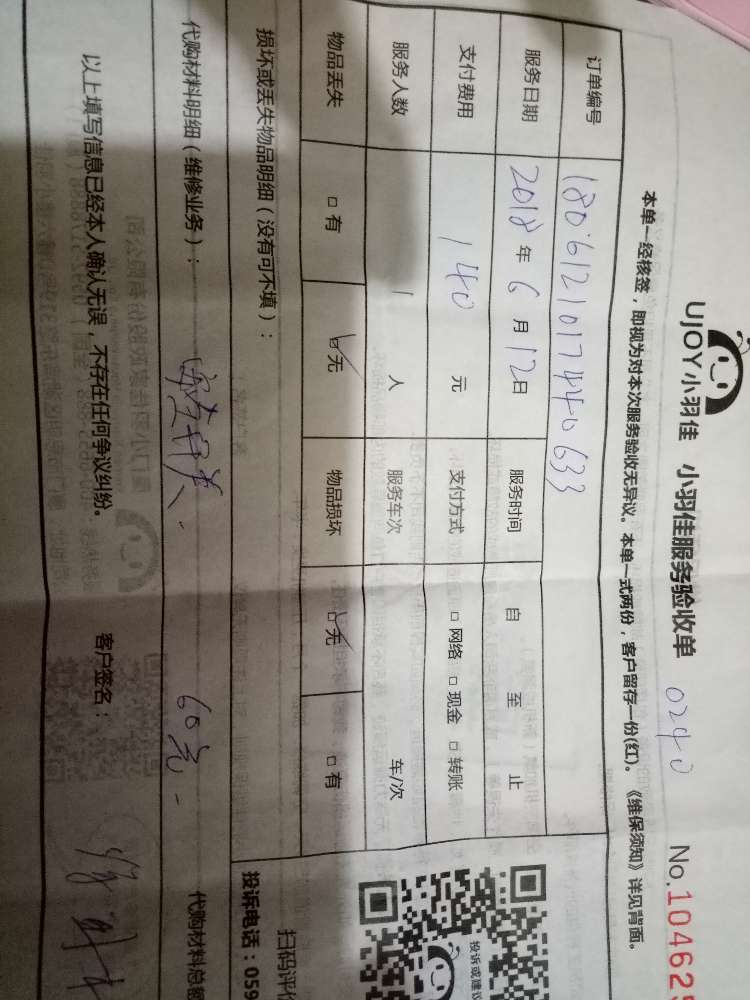 UJOY小羽佳 小羽佳服务验收单 0240 No.104625
本单一经核签，即视为对本次服务验收无异议。本单一式两份，客户留存一份(红)。《维保须知》详见背面。
订单编号 180612101744063３
服务日期 2018年6月12日 服务时间 自 至 止
支付费用 140 元 支付方式 □网络 □现金 □转账
服务人数 1 人 服务车次 车/次
物品丢失 □有 ☑无 物品损坏 ☑无 □有
损坏或丢失物品明细（没有可不填）：
代购材料明细（维修业务）： 60元 代购材料总额
以上填写信息已经本人确认无误，不存在任何争议纠纷。 客户签名：
投诉或建议
扫码评价
投诉电话：059